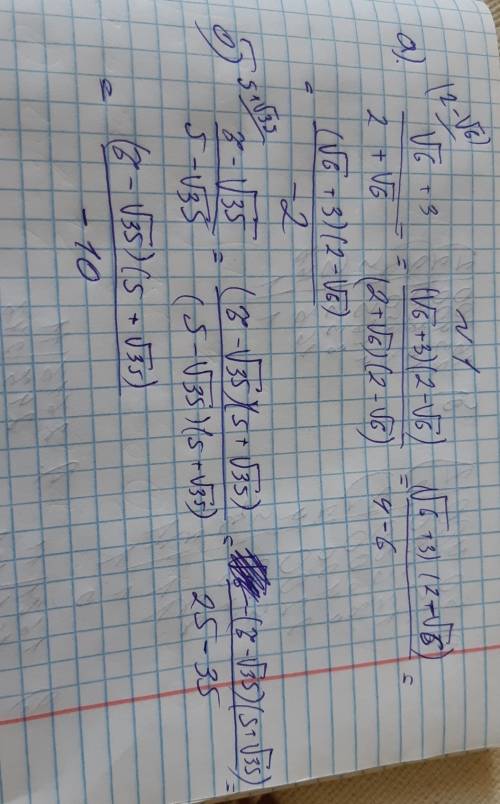 N 1
a) (2-√6)/ (√6 + 3)/(2 + √6) = ((√6+3)(2-√6))/((2+√6)(2-√6)) = ((√6+3)(2+√6))/(4-6) =
= ((√6+3)(2-√6))/(-2)
б) 5+√35/ (8-√35)/(5-√35) = ((8-√35)(5+√35))/((5-√35)(5+√35)) = (-(8-√35)(5+√35))/(25-35) =
= ((8-√35)(5+√35))/(-10)